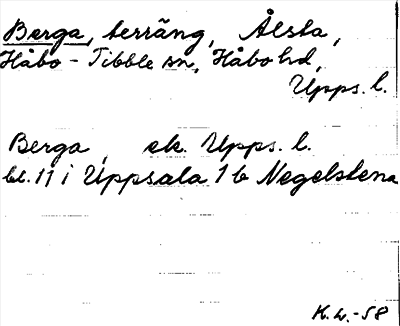 Berga, terräng, Ålsta,
Håbo-Tibble sn, Håbo hd,
Upps. l.
Berga, ek. Upps. l.
bl. 11 i Uppsala 1 b Negelstena
K.L.-58